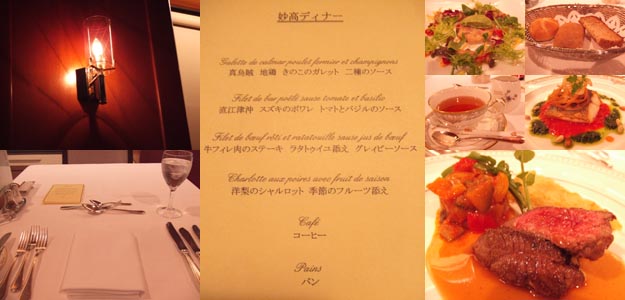 妙高ディナー
Galette de calmar poulet fermier et champignons
真烏賊 地鶏 きのこのガレット 二種のソース
Filet de bar poêlé sauce tomate et basilic
直江津沖 スズキのポワレ トマトとバジルのソース
Filet de bœuf rôti et ratatouille sauce jus de bœuf
牛フィレ肉のステーキ ラタトゥイユ添え グレイビーソース
Charlotte aux poires avec fruit de saison
洋梨のシャルロット 季節のフルーツ添え
Café
コーヒー
Pains
パン